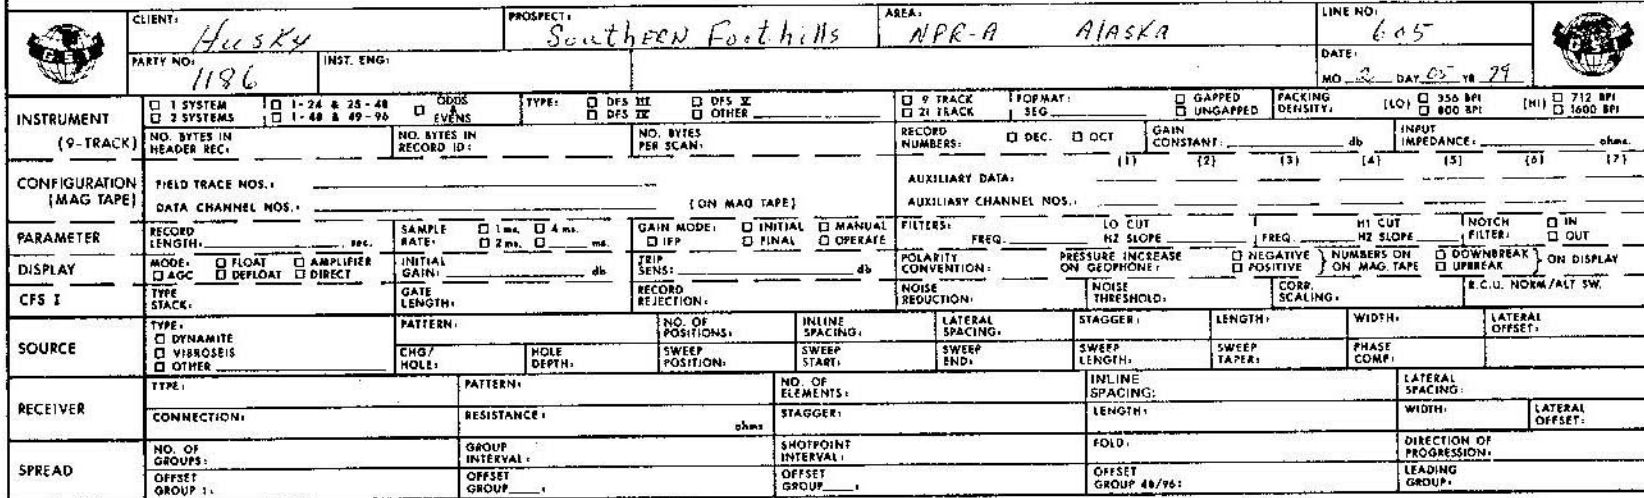 CLIENT: Husky PROSPECT: Southern Foothills AREA: NPR-A Alaska LINE NO: 605
PARTY NO: 1186 INST. ENG: DATE: MO 2 DAY 05 YR 79
GSI GSI
INSTRUMENT (9-TRACK) □ 1 SYSTEM □ 1-24 & 25-48 □ ODDS & EVENS TYPE: □ DFS III □ DFS V □ 9 TRACK FORMAT: □ GAPPED PACKING DENSITY: (LO) □ 356 BPI (HI) □ 712 BPI
□ 2 SYSTEMS □ 1-48 & 49-96 □ DFS IV □ OTHER □ 21 TRACK SEG □ UNGAPPED □ 800 BPI □ 1600 BPI
NO. BYTES IN HEADER REC: NO. BYTES IN RECORD ID: NO. BYTES PER SCAN: RECORD NUMBERS: □ DEC. □ OCT GAIN CONSTANT: db INPUT IMPEDANCE: ohms.
(1) (2) (3) (4) (5) (6) (7)
CONFIGURATION (MAG TAPE) FIELD TRACE NOS.: AUXILIARY DATA:
DATA CHANNEL NOS.: (ON MAG TAPE) AUXILIARY CHANNEL NOS.:
PARAMETER RECORD LENGTH: sec. SAMPLE RATE: □ 1 ms. □ 4 ms. □ 2 ms. □ ms. GAIN MODE: □ INITIAL □ MANUAL □ IFP □ FINAL □ OPERATE FILTERS: LO CUT FREQ. HZ SLOPE HI CUT FREQ. HZ SLOPE NOTCH FILTER: □ IN □ OUT
DISPLAY MODE: □ FLOAT □ AMPLIFIER □ AGC □ DEFLOAT □ DIRECT INITIAL GAIN: db TRIP SENS: db POLARITY CONVENTION: PRESSURE INCREASE ON GEOPHONE: □ NEGATIVE □ POSITIVE } NUMBERS ON MAG. TAPE □ DOWNBREAK □ UPBREAK } ON DISPLAY
CFS I TYPE STACK: GATE LENGTH: RECORD REJECTION: NOISE REDUCTION: NOISE THRESHOLD: CORR. SCALING: R.C.U. NORM/ALT SW.
SOURCE TYPE: □ DYNAMITE □ VIBROSEIS □ OTHER PATTERN: NO. OF POSITIONS: INLINE SPACING: LATERAL SPACING: STAGGER: LENGTH: WIDTH: LATERAL OFFSET:
CHG/HOLE: HOLE DEPTH: SWEEP POSITION: SWEEP START: SWEEP END: SWEEP LENGTH: SWEEP TAPER: PHASE COMP:
RECEIVER TYPE: PATTERN: NO. OF ELEMENTS: INLINE SPACING: LATERAL SPACING:
CONNECTION: RESISTANCE: ohms STAGGER: LENGTH: WIDTH: LATERAL OFFSET:
SPREAD NO. OF GROUPS: GROUP INTERVAL: SHOTPOINT INTERVAL: FOLD: DIRECTION OF PROGRESSION:
OFFSET GROUP 1: OFFSET GROUP : OFFSET GROUP : OFFSET GROUP 48/96: LEADING GROUP: